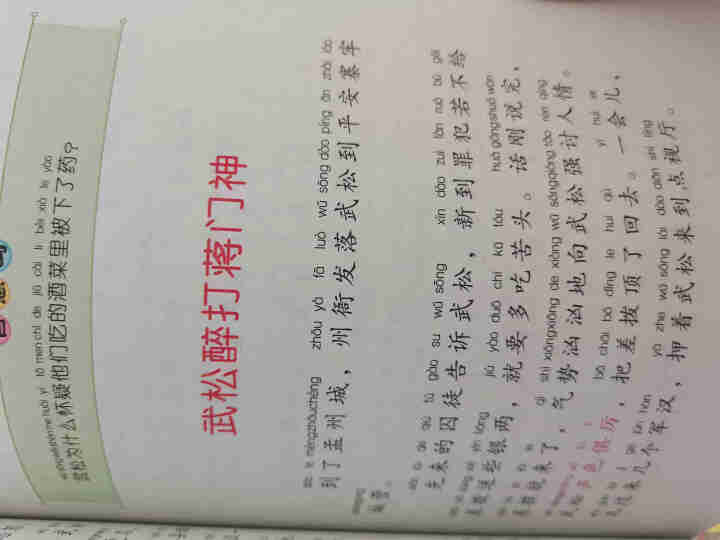 wǔ sōng wèi shén me huái yí tā men chī de jiǔ cài lǐ bèi xià le yào
武松为什么怀疑他们吃的酒菜里被下了药？
武松醉打蒋门神
dào le mèng zhōu chéng zhōu yá fā luò wǔ sōng dào píng ān zhài láo
到了孟州城，州衙发落武松到平安寨牢
营。
xiān lái de qiú tú gào su wǔ sōng xīn dào zuì fàn ruò bù gěi
先来的囚徒告诉武松，新到罪犯若不给
xiē yín liǎng jiù yào duō chī kǔ tóu huà gāng shuō wán
些银两，就要多吃苦头。话刚说完，
qì shì xiōng xiōng de xiàng wǔ sōng qiǎng tǎo rén qíng
差拨就来了，气势汹汹地向武松强讨人情。
bǎ chāi bō dǐng le huí qù yí huì er
武松声色俱厉，把差拨顶了回去。一会儿，
jūn hàn yā zhe wǔ sōng lái dào diǎn shì tīng
来几个军汉，押着武松来到点视厅。